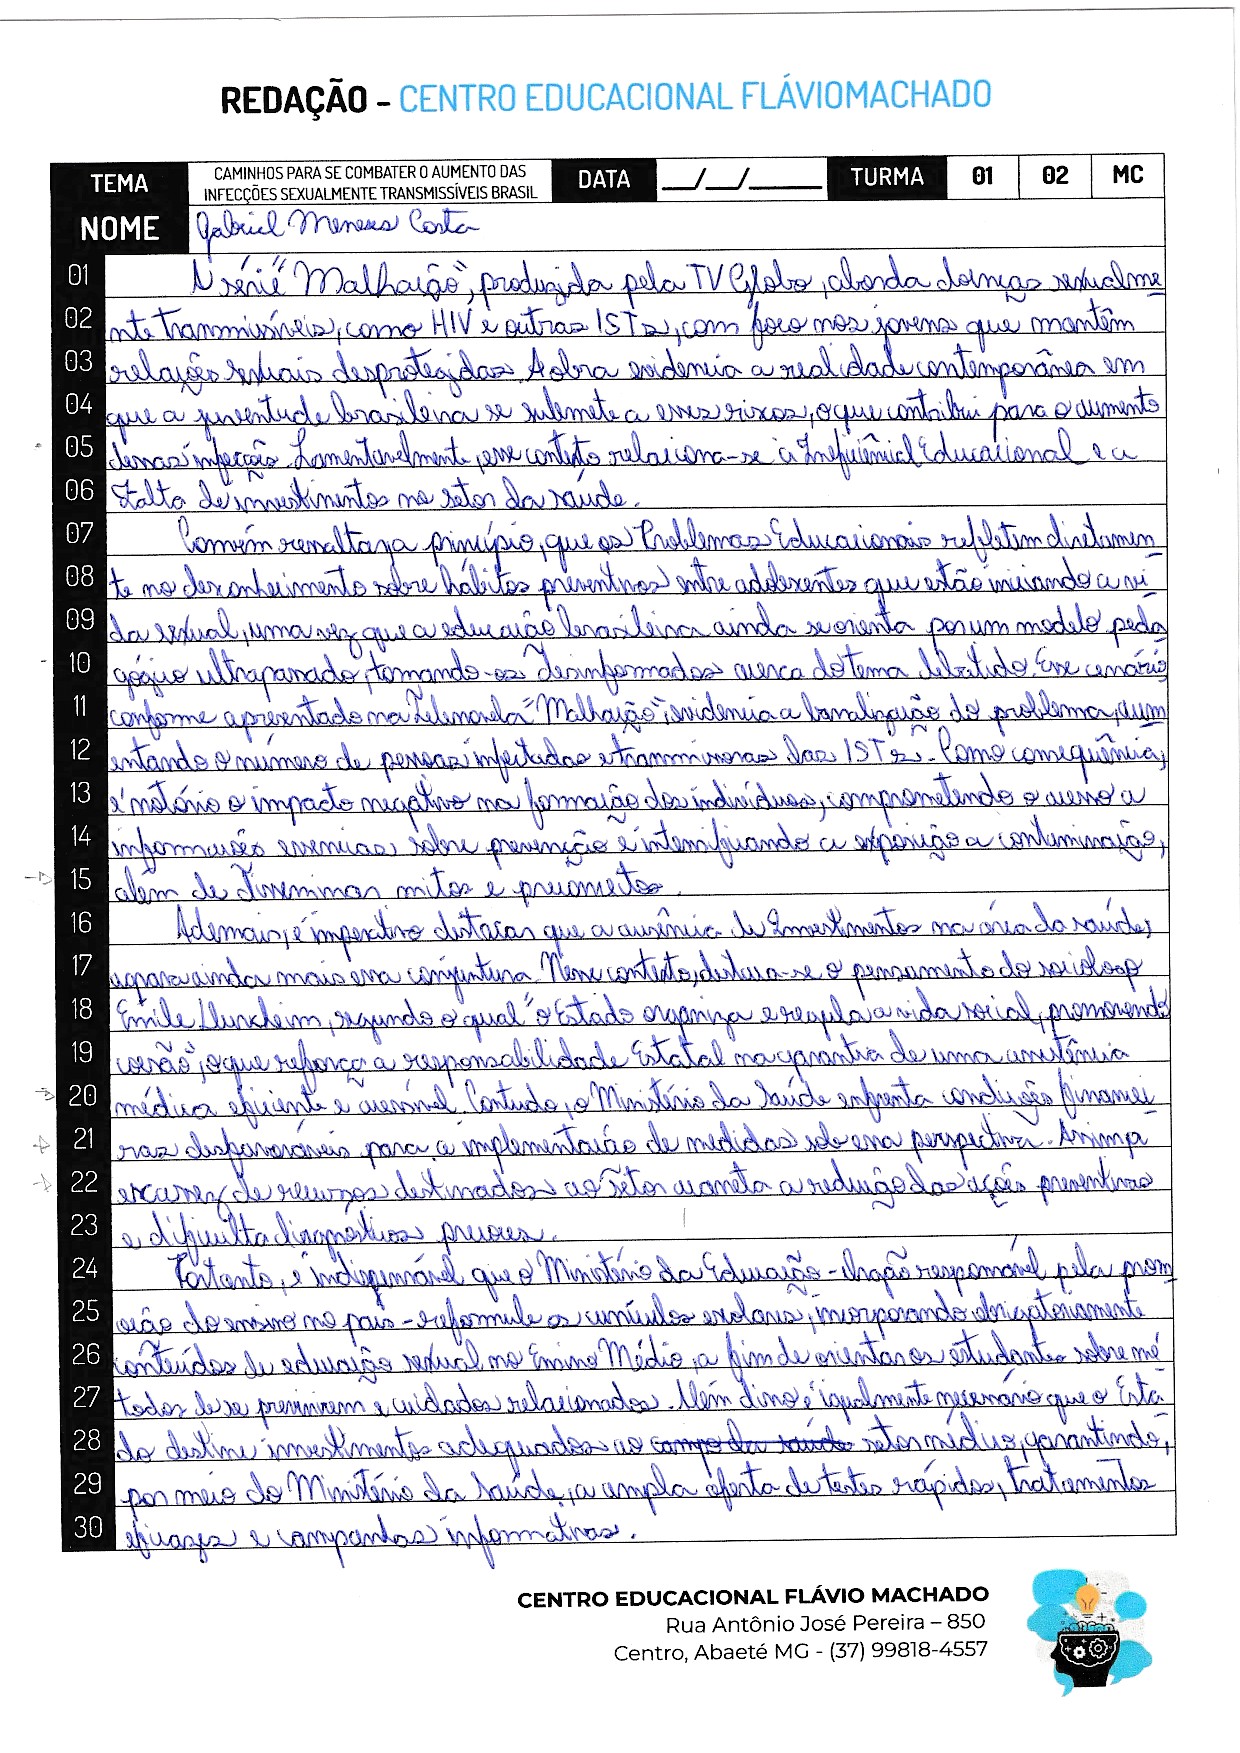 REDAÇÃO - CENTRO EDUCACIONAL FLÁVIOMACHADO
TEMA
CAMINHOS PARA SE COMBATER O AUMENTO DAS
INFECÇÕES SEXUALMENTE TRANSMISSÍVEIS BRASIL
DATA __/__/____
TURMA 01 02 MC
NOME Gabriel Meneses Costa
01 A série "Malhação", produzida pela TV Globo, aborda doenças sexualme
02 nte transmissíveis, como HIV e outras ISTs, com foco nos jovens que mantêm
03 relações sexuais desprotegidas. A obra evidencia a realidade contemporânea em
04 que a juventude brasileira se submete a esses riscos, o que contribui para o aumento
05 dessas infecções. Lamentavelmente, esse contexto relaciona-se à Ineficiência Educacional e a
06 Falta de investimentos no setor da saúde.
07 Convém ressaltar a princípio, que os Problemas Educacionais refletem diretamen
08 te no desconhecimento sobre hábitos preventivos entre adolescentes que estão iniciando a vi
09 da sexual, uma vez que a educação brasileira ainda se orienta por um modelo peda
10 gógico ultrapassado, tornando-os desinformados acerca do tema debatido. Esse cenário
11 conforme apresentado na Telenovela "Malhação", evidencia a banalização do problema, aum
12 entando o número de pessoas infectadas e transmissoras das ISTs. Como consequência,
13 é notório o impacto negativo na formação dos indivíduos, comprometendo o acesso a
14 informações essenciais sobre prevenção e intensificando a exposição a contaminação,
15 além de disseminar mitos e preconceitos.
16 Ademais, é imperativo destacar que a ausência de Investimentos na área da saúde,
17 agrava ainda mais essa conjuntura. Nesse contexto, destaca-se o pensamento do sociólogo
18 Émile Durkheim, segundo o qual "o Estado organiza e regula a vida social, promovendo
19 coesão", o que reforça a responsabilidade Estatal na garantia de uma assistência
20 médica eficiente e acessível. Contudo, o Ministério da Saúde enfrenta condições financei
21 ras desfavoráveis para a implementação de medidas sob essa perspectiva. Assim a
22 escassez de recursos destinados ao setor acarreta a redução das ações preventivas
23 e dificulta diagnósticos precoces.
24 Portanto, é indispensável que o Ministério da Educação - órgão responsável pela prom
25 oção do ensino no país - reformule os currículos escolares, incorporando obrigatoriamente
26 conteúdos de educação sexual no Ensino Médio, a fim de orientar os estudantes sobre mé
27 todos de se prevenirem e cuidados relacionados. Além disso é igualmente necessário que o Esta
28 do destine investimentos adequados ao campo da saúde setor médico, garantindo,
29 por meio do Ministério da Saúde, a ampla oferta de testes rápidos, tratamentos
30 eficazes e campanhas informativas.
CENTRO EDUCACIONAL FLÁVIO MACHADO
Rua Antônio José Pereira – 850
Centro, Abaeté MG - (37) 99818-4557